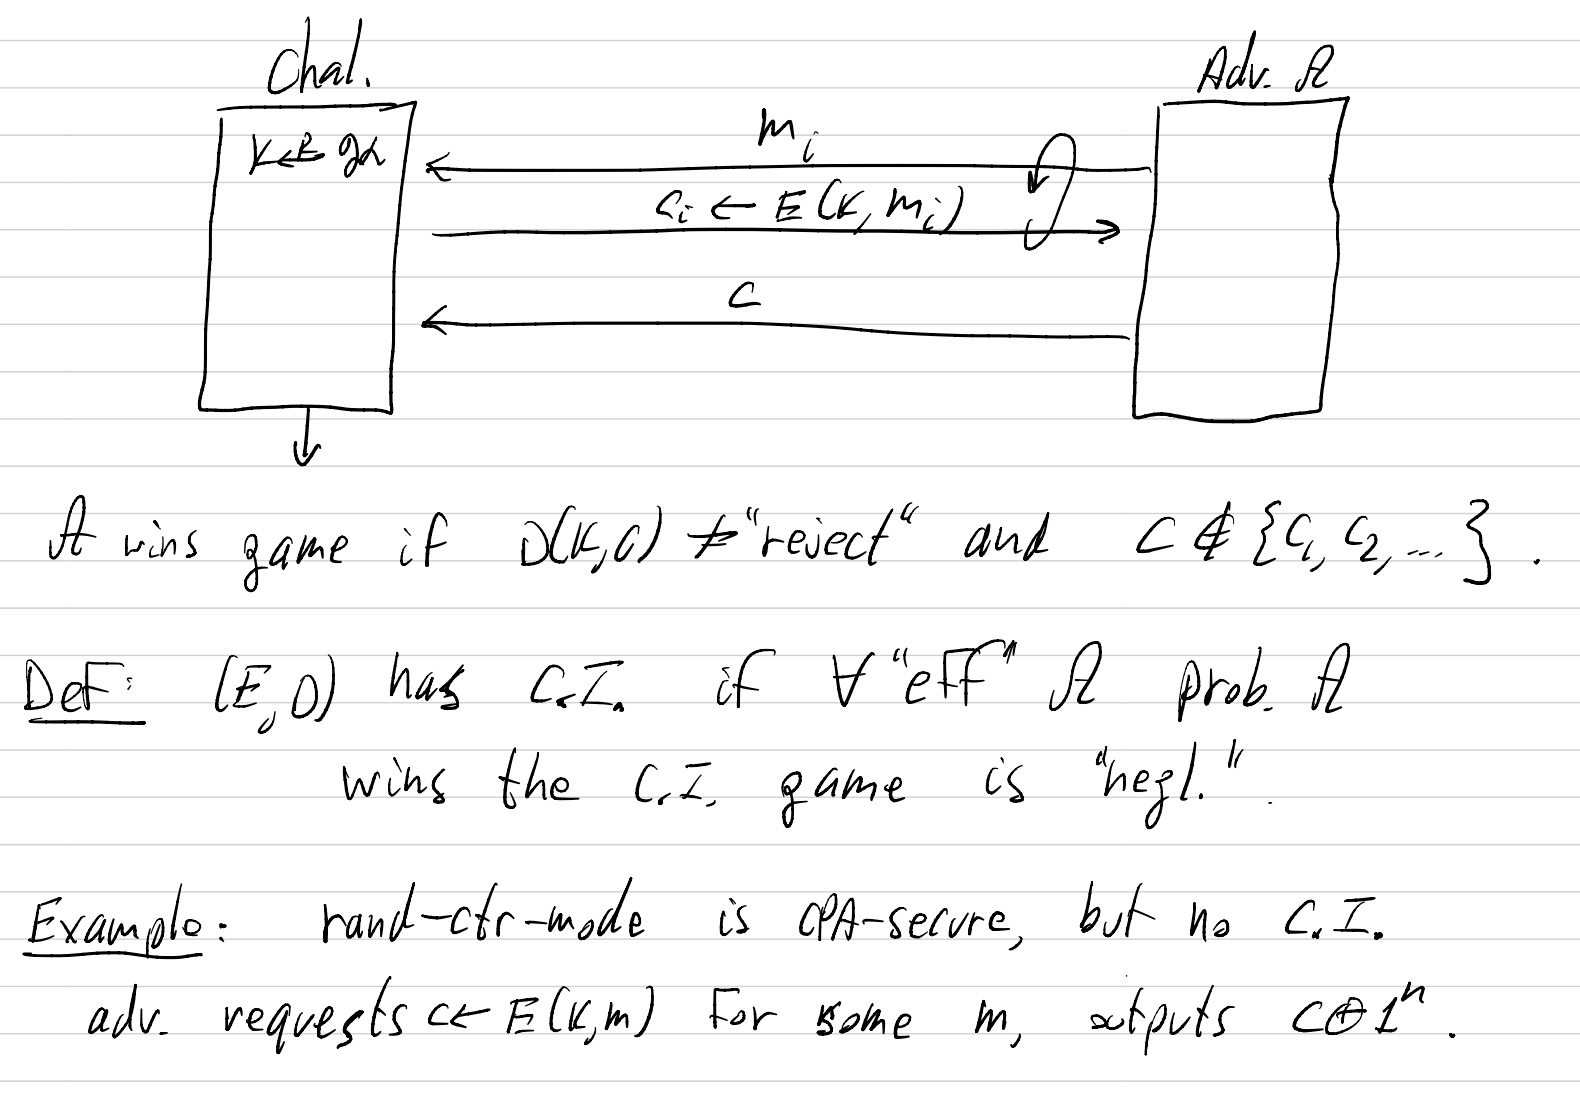 Chal.
Adv. A
K ←R 𝒦
m_i
c_i ← E(K, m_i)
C
A wins game if D(K,C) ≠ "reject" and C ∉ {C₁, C₂, ...}.
Def: (E,D) has C.I. if ∀ "eff" A prob. A
wins the C.I. game is "negl.".
Example: rand-ctr-mode is CPA-secure, but no C.I.
adv. requests c ← E(K,m) for some m, outputs C⊕1ⁿ.